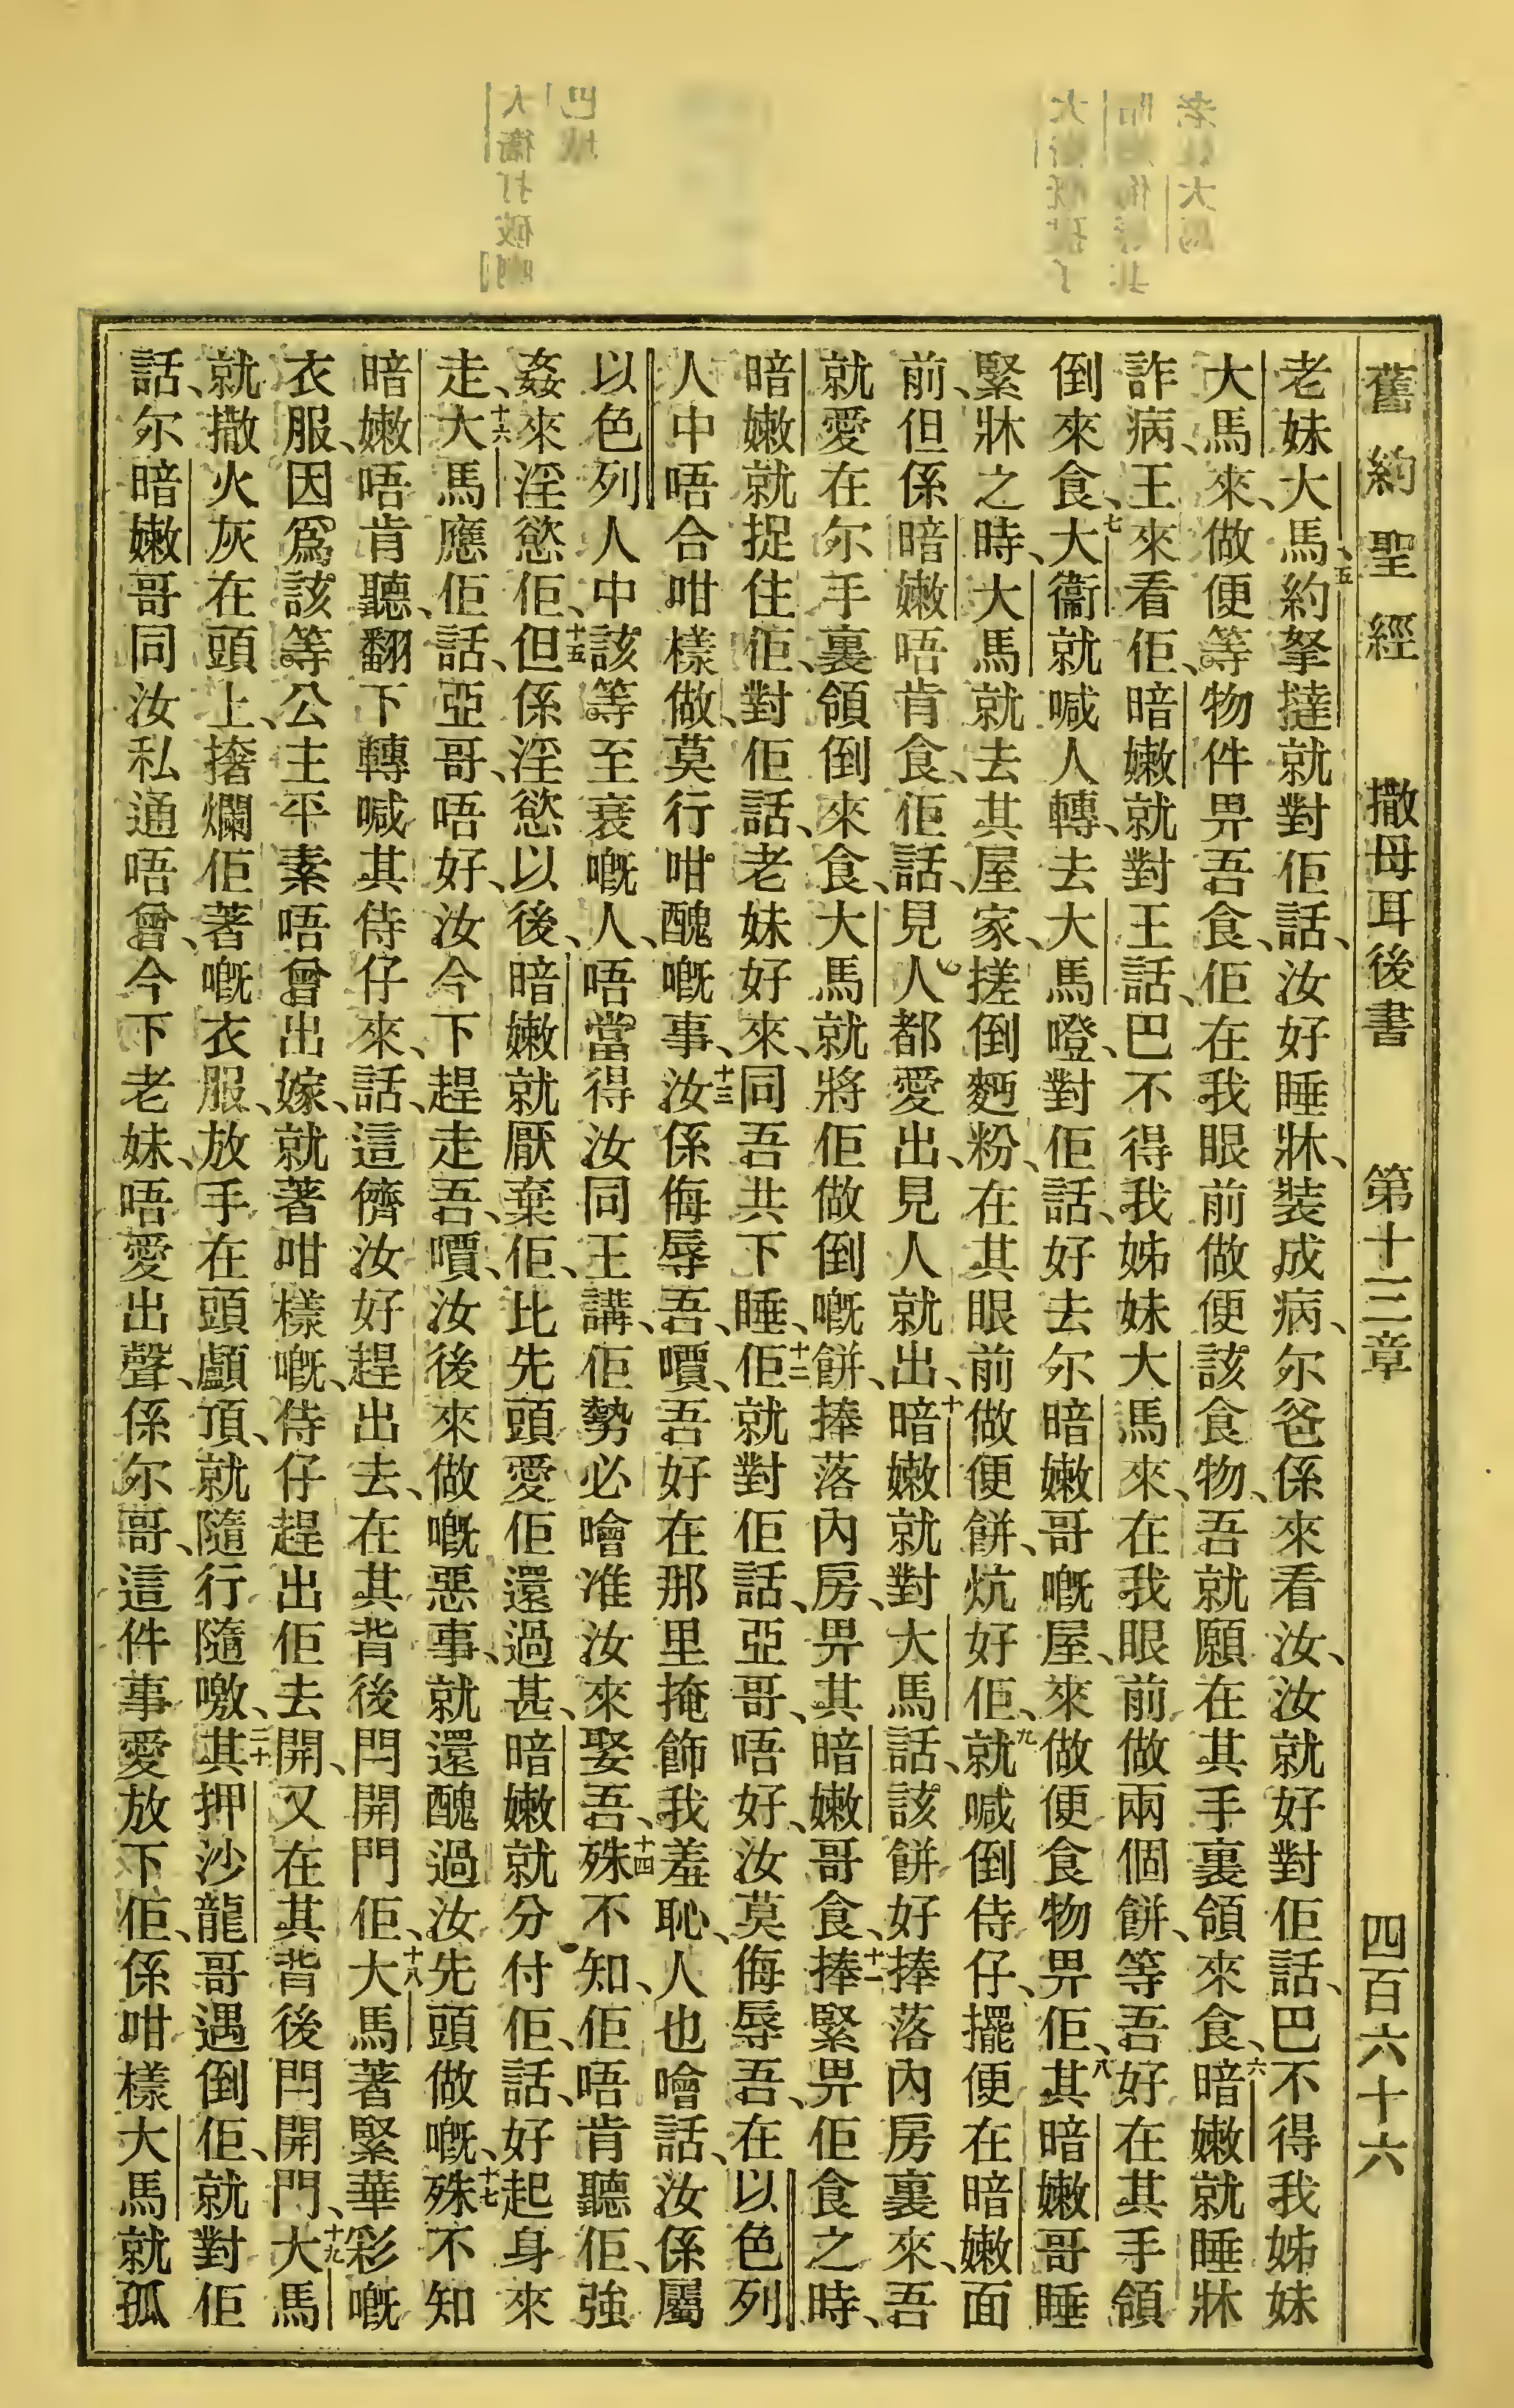 舊約聖經　撒母耳後書　第十三章　四百六十六
老妹大馬、五約拏撻就對佢話、汝好睡牀、裝成病、尔爸係來看汝、汝就好對佢話、巴不得我姊妹
大馬來、做便等物件畀吾食、佢在我眼前做便該食物、吾就願在其手裏領來食、六暗嫩就睡牀
詐病、王來看佢、暗嫩就對王話、巴不得我姊妹大馬來、在我眼前做兩個餅、等吾好在其手領
倒來食、七大衞就喊人轉、去大馬嶝、對佢話、好去尔暗嫩哥嘅屋、來做便食物畀佢、八其暗嫩哥睡
緊牀之時、大馬就去其屋家、搓倒麪粉、在其眼前做便餅、炕好佢、九就喊倒侍仔、擺便在暗嫩面
前、但係暗嫩唔肯食、佢話、見人都愛出、見人就出、十暗嫩就對大馬話、該餅好捧落內房裏來、吾
就愛在尔手裏領倒來食、大馬就將佢做倒嘅餅、捧落內房、畀其暗嫩哥食、十一捧緊畀佢食之時、
暗嫩就捉住佢、對佢話、老妹好來、同吾共下睡、十二佢就對佢話、亞哥、唔好、汝莫侮辱吾、在以色列
人中唔合咁樣做、莫行咁醜嘅事、十三汝係侮辱吾、嘪、吾好在那里掩飾我羞恥、人也噲話、汝係屬
以色列人中該等至衰嘅人、唔當得汝同王講、佢勢必噲准汝來娶吾、十四殊不知、佢唔肯聽佢、強
姦來淫慾佢、十五但係淫慾以後、暗嫩就厭棄佢、比先頭愛佢還過甚、暗嫩就分付佢、話、好起身來
走、十六大馬應佢話、亞哥、唔好、汝今下趕走吾、嘪、汝後來做嘅惡事、就還醜過汝先頭做嘅、十七殊不知
暗嫩唔肯聽、翻下轉喊其侍仔來、話、這儕汝好趕出去、在其背後閂開門佢、十八大馬著緊華彩嘅
衣服、因爲該等公主平素唔曾出嫁、就著咁樣嘅、侍仔趕出佢去開、又在其背後閂開門、十九大馬
就撒火灰在頭上、撦爛佢著嘅衣服、放手在頭顱頂、就隨行隨噭、二十其押沙龍哥遇倒佢、就對佢
話、尔暗嫩哥同汝私通唔曾、今下老妹、唔愛出聲、係尔哥、這件事愛放下佢、係咁樣大馬就孤